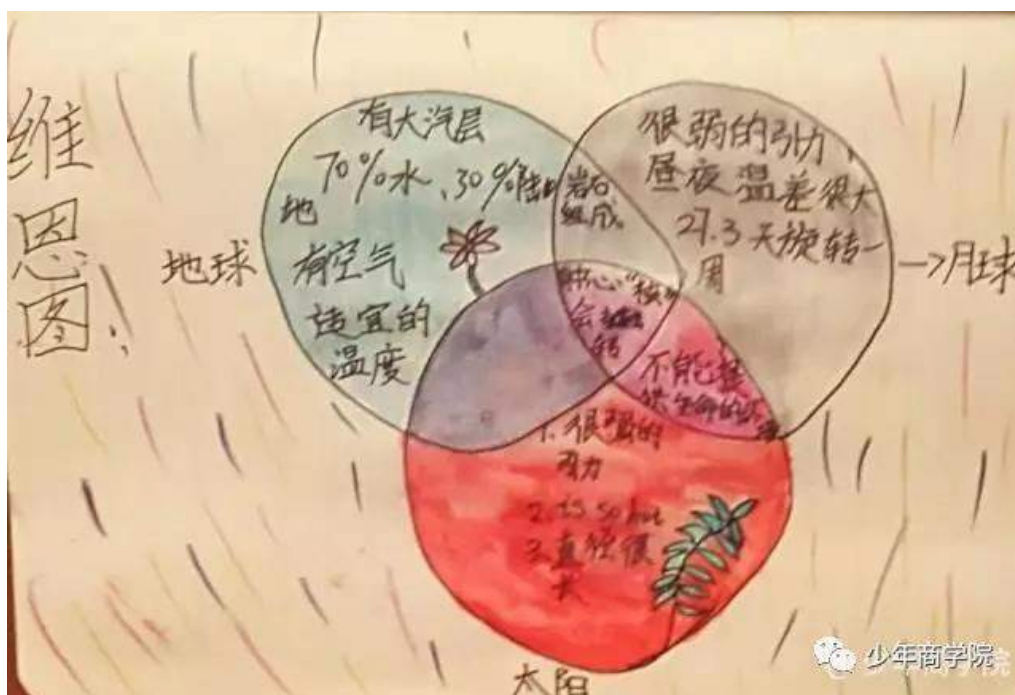 维恩图:
地球
有大汽层
70%水、30%陆
地
有空气
适宜的
温度
岩石
组成
很弱的引力,
昼夜温差很大
27.3天旋转一
周
→月球
会
转
不能提
供生命的
1.很强的
引力
2.is so hot
3.直径很
大
太阳
少年商学院